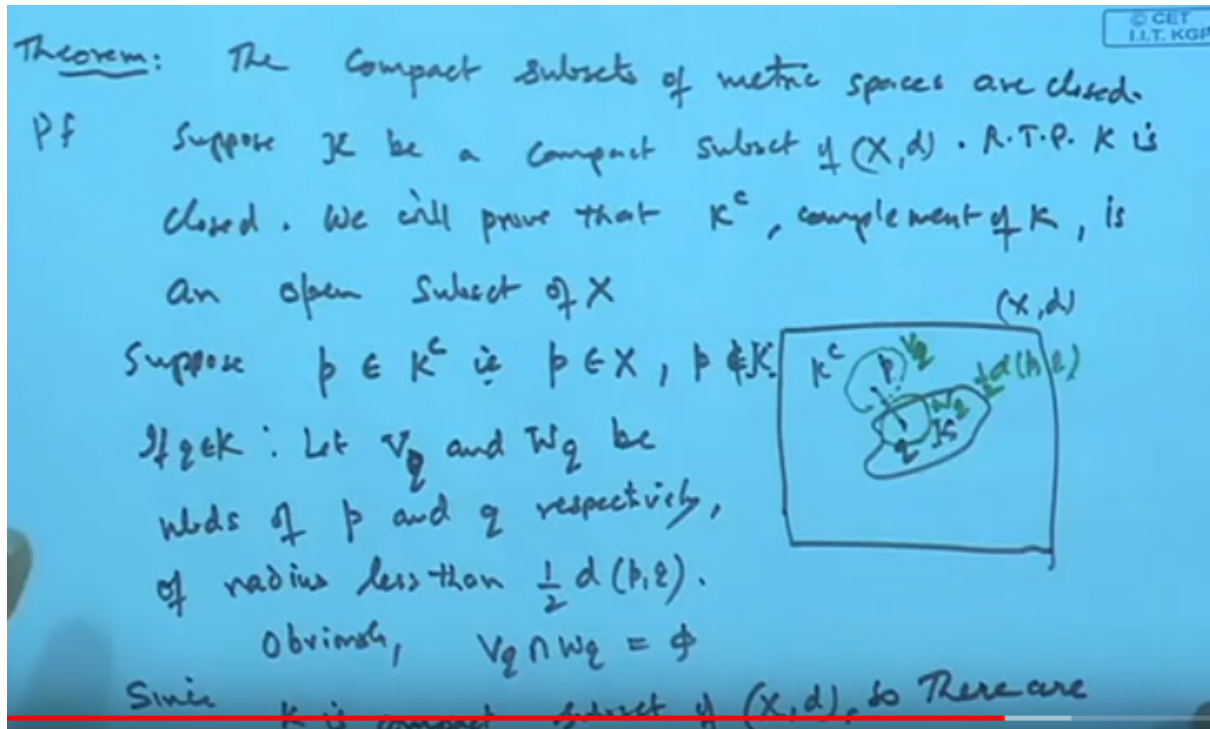 © CET
I.I.T. KGP
Theorem: The Compact subsets of metric spaces are closed.
Pf Suppose K be a compact subset of (X,d). R.T.P. K is
closed. We will prove that K^c, complement of K, is
an open subset of X
(X,d)
Suppose p ∈ K^c ie p ∈ X, p ∉ K
K^c p V_q ½d(p,q)
W_q K
q
If q∈K : Let V_q and W_q be
nbds of p and q respectively,
of radius less than ½ d(p,q).
Obviously, V_q ∩ W_q = φ
Since K is compact subset of (X,d), so There are